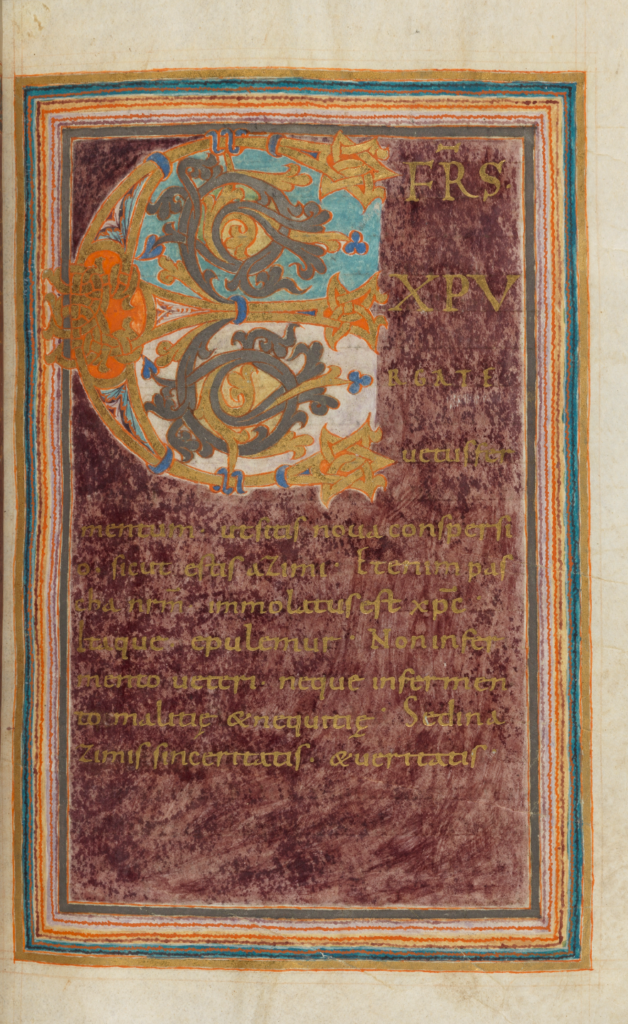 F̅R̅S·
EXPV
RGATE
uetus fer
mentum· ut sitis noua conspersi
o· sicut estis azimi· Etenim pas
cha nr̅m immolatus est xp̅c
Itaque epulemur· Non in fer
mento ueteri· neque in fermen
to malitię & nequitię· Sed in a
zimis sinceritatis· & ueritatis·